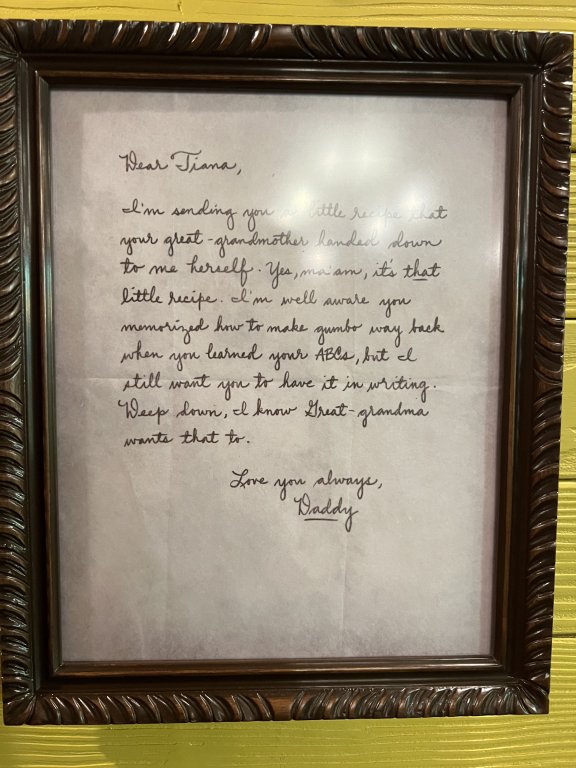 Dear Tiana,
I'm sending you a little recipe that
your great-grandmother handed down
to me herself. Yes, ma'am, it's that
little recipe. I'm well aware you
memorized how to make gumbo way back
when you learned your ABCs, but I
still want you to have it in writing.
Deep down, I know Great-grandma
wants that to.
Love you always,
Daddy